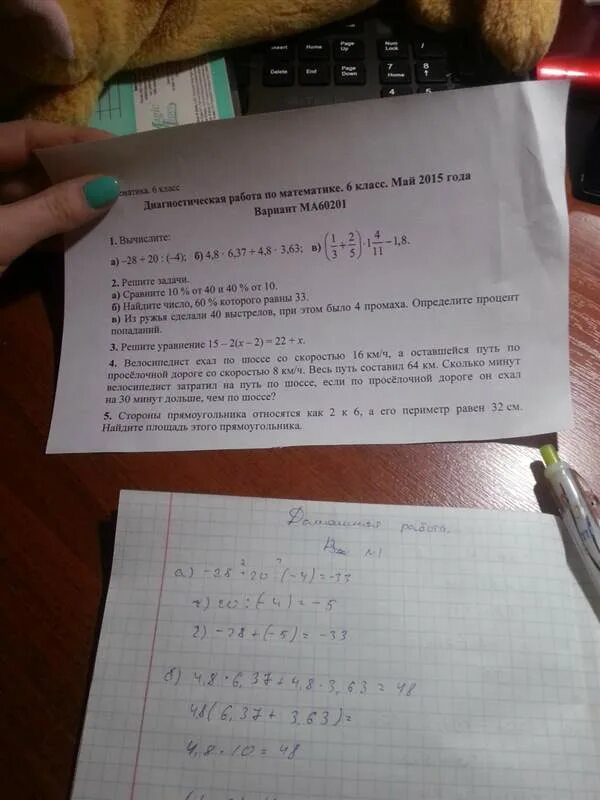 Insert Home Page Up Num Lock /
Delete End Page Down 7 Home 8
4
Magic
матика. 6 класс
Диагностическая работа по математике. 6 класс. Май 2015 года
Вариант МА60201
1. Вычислите:
а) –28 + 20 : (–4); б) 4,8 · 6,37 + 4,8 · 3,63; в) (1/3 + 2/5) · 1 4/11 – 1,8.
2. Решите задачи.
а) Сравните 10 % от 40 и 40 % от 10.
б) Найдите число, 60 % которого равны 33.
в) Из ружья сделали 40 выстрелов, при этом было 4 промаха. Определите процент
попаданий.
3. Решите уравнение 15 – 2(x – 2) = 22 + x.
4. Велосипедист ехал по шоссе со скоростью 16 км/ч, а оставшейся путь по
просёлочной дороге со скоростью 8 км/ч. Весь путь составил 64 км. Сколько минут
велосипедист затратил на путь по шоссе, если по просёлочной дороге он ехал
на 30 минут дольше, чем по шоссе?
5. Стороны прямоугольника относятся как 2 к 6, а его периметр равен 32 см.
Найдите площадь этого прямоугольника.
Домашняя работа.
№1
а) -28 + 20 : (-4) = -33
1) 20 : (-4) = -5
2) -28 + (-5) = -33
б) 4,8 · 6,37 + 4,8 · 3,63 = 48
48(6,37 + 3,63) =
4,8 · 10 = 48